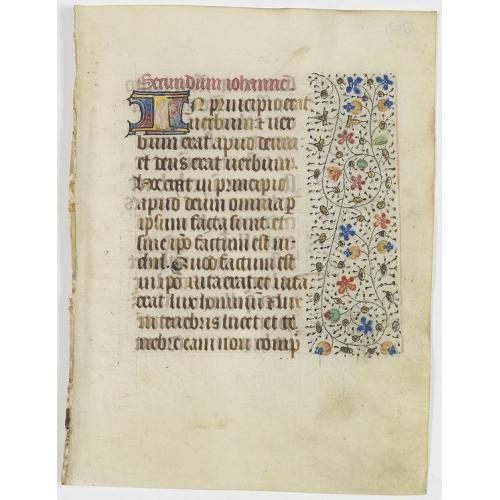 Secundum iohannē
IN principio erat
uerbum ⁊ uer
bum erat apud deum
et deus erat uerbum.
Hoc erat in principio
apud deum omnia p
ipsum facta sunt. et
sine ipo factum est ni
chil. Quod factum est
in ipo uita erat. et uita
erat lux hominū ⁊ lux
in tenebris lucet et te
nebre eam non comp